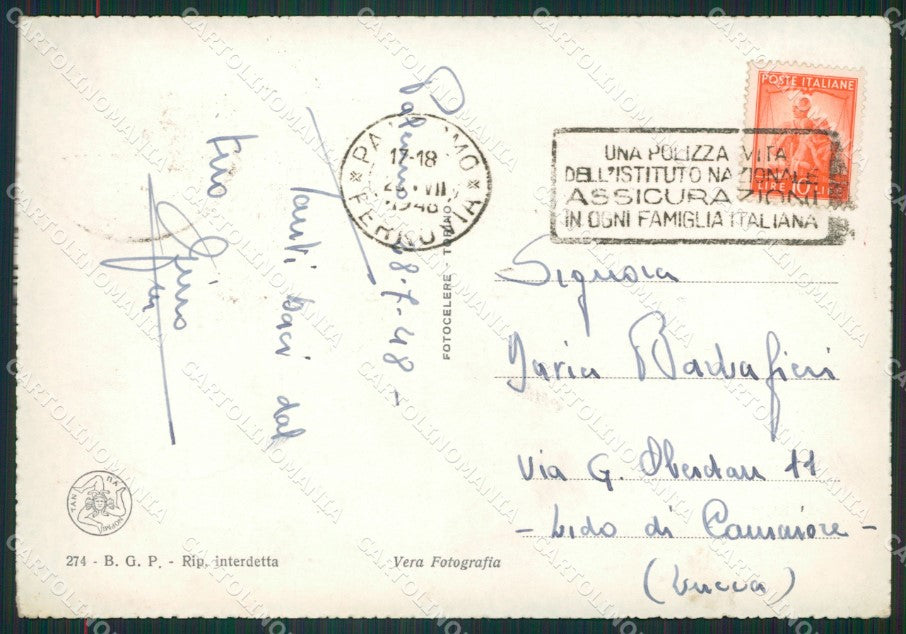 Palermo 28-7-48-
Tanti baci dal
tuo Gino
PALERMO
17-18
28 VII
1948
FERROVIA
UNA POLIZZA VITA
DELL'ISTITUTO NAZIONALE
ASSICURAZIONI
IN OGNI FAMIGLIA ITALIANA
POSTE ITALIANE
LIRE 10
FOTOCELERE - TORINO
Signora
Barbafieri
Via G. Oberdan 11
- Lido di Camaiore -
(Lucca)
274 - B. G. P. - Rip. interdetta
Vera Fotografia
CARTOLINOMANIA